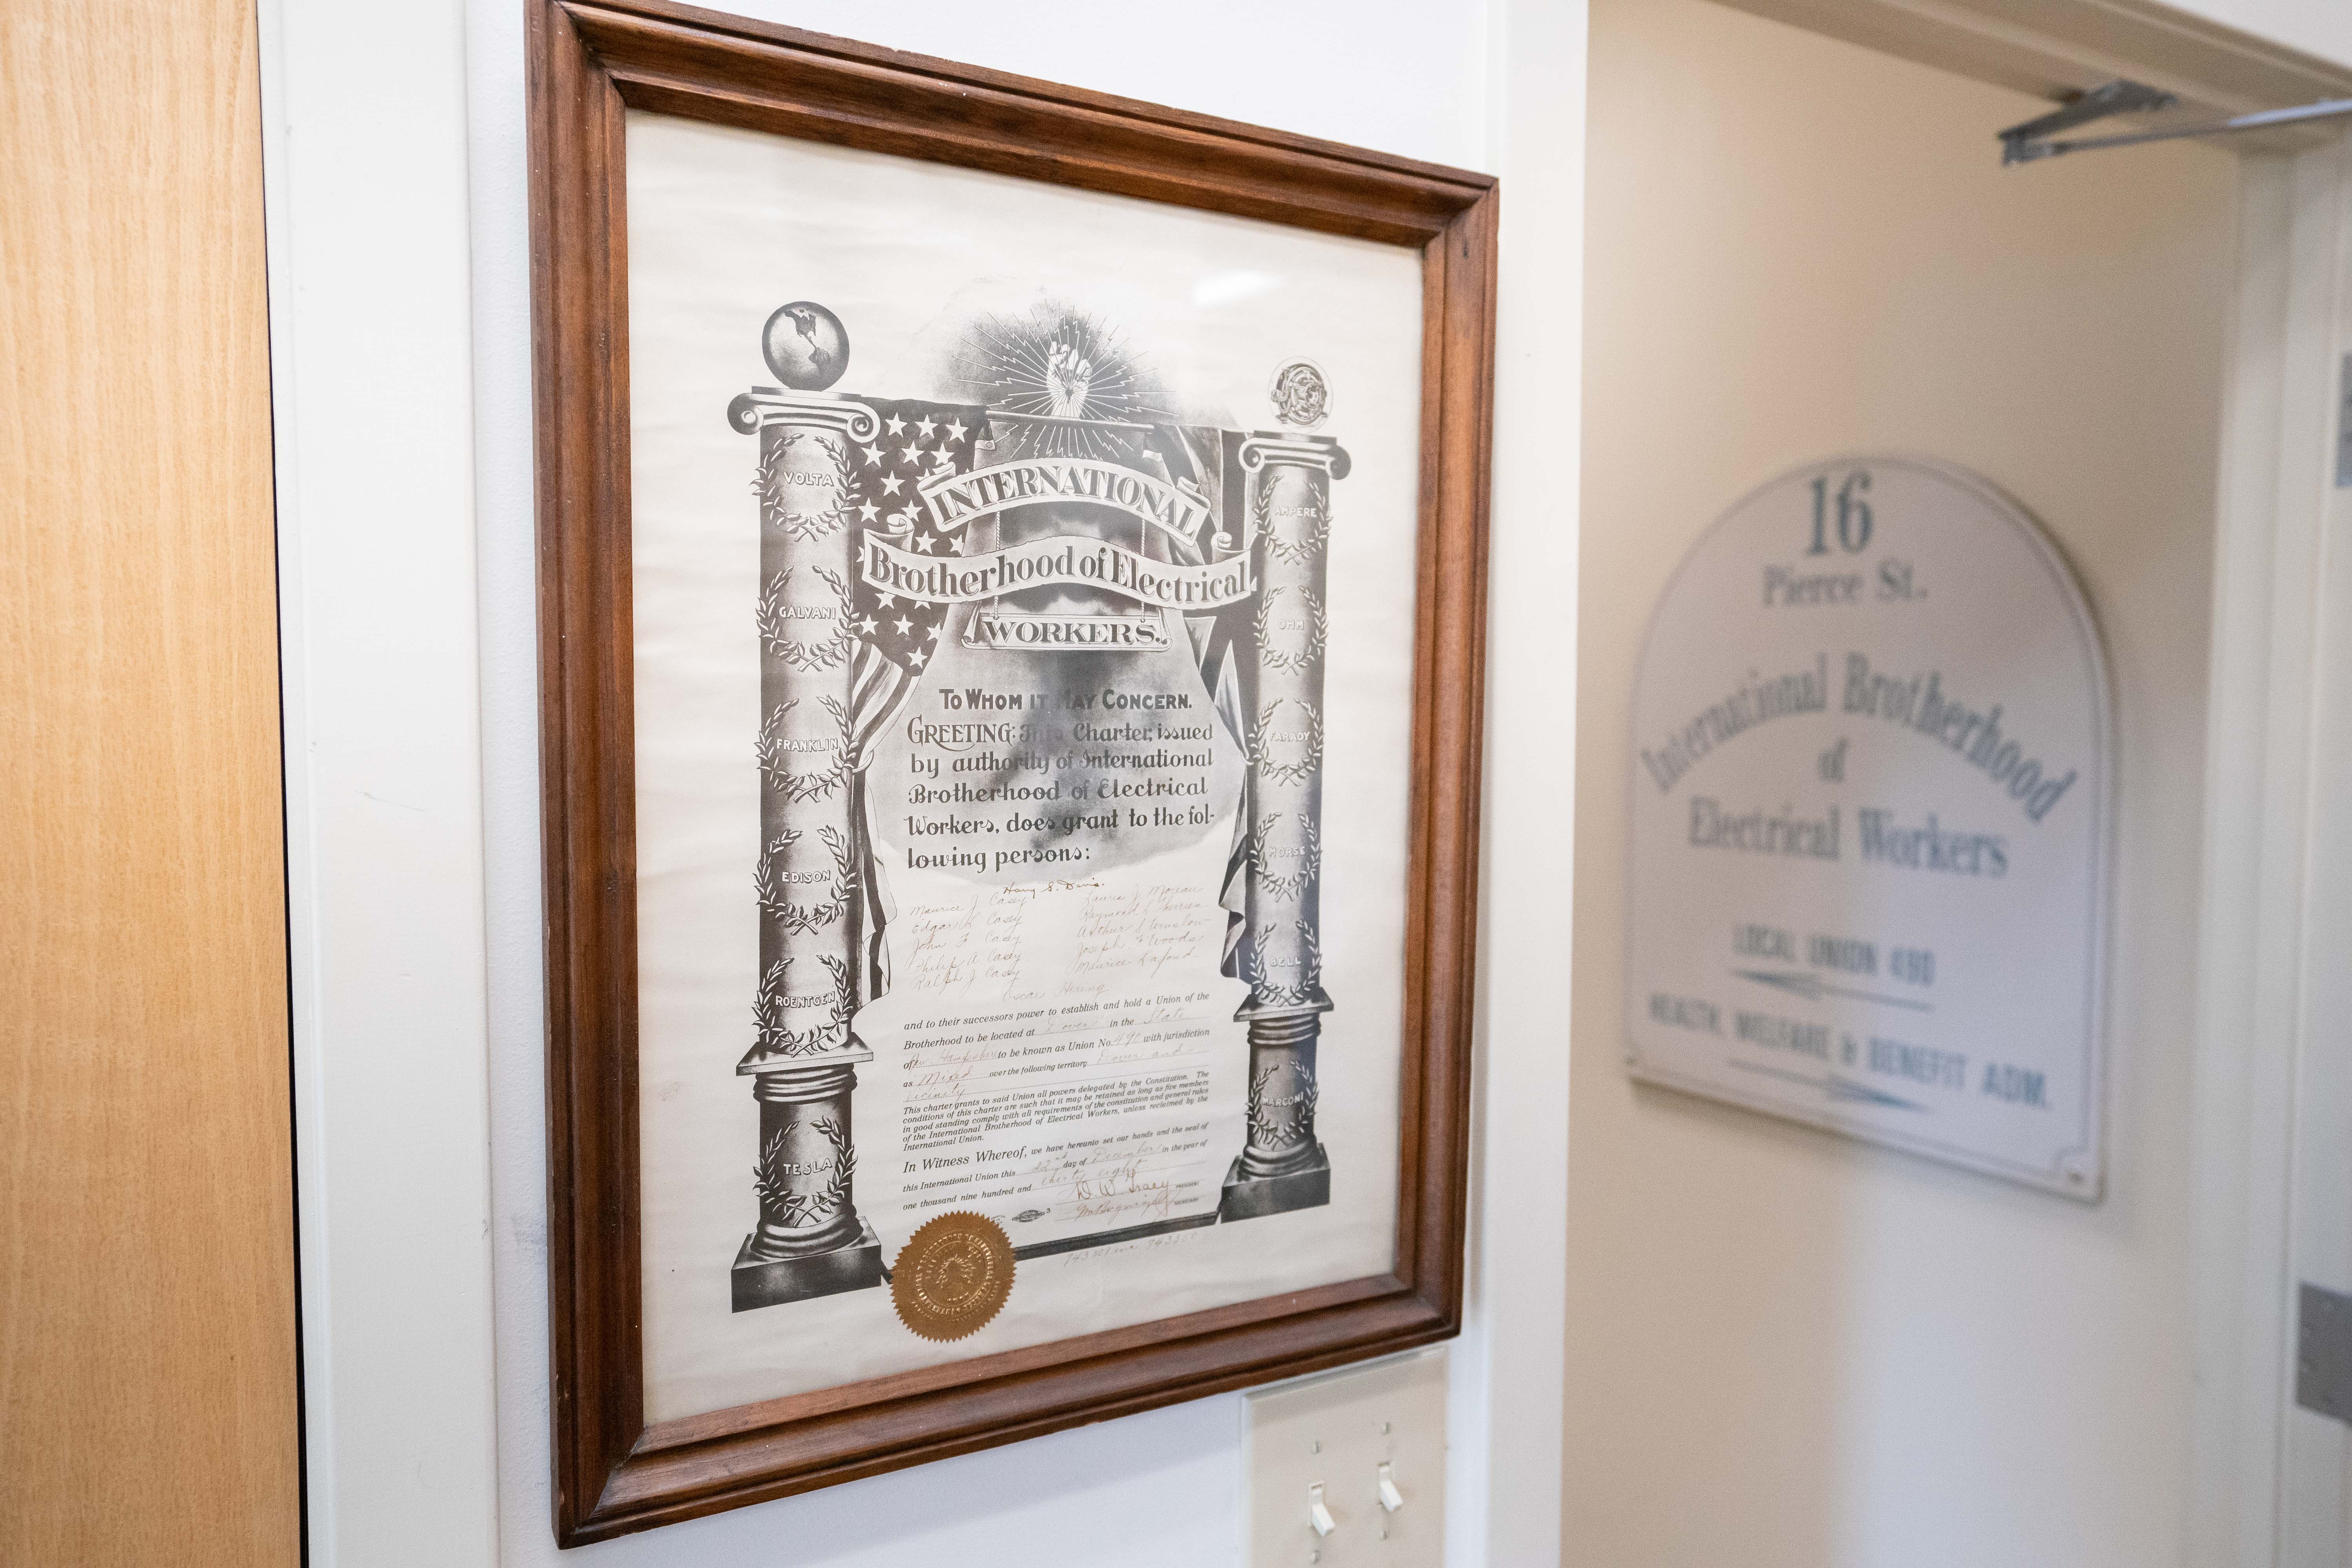 INTERNATIONAL
Brotherhood of Electrical
WORKERS.
VOLTA
GALVANI
FRANKLIN
EDISON
ROENTGEN
TESLA
AMPERE
OHM
FARADY
MORSE
BELL
MARCONI
TO WHOM IT MAY CONCERN.
GREETING: This Charter, issued
by authority of International
Brotherhood of Electrical
Workers, does grant to the fol-
lowing persons:
Harry S. Davis.
Maurice J Casey
Edgar Casey
John F Casey
Philip A Casey
Ralph J Casey
J. Moreau
Raymond
Arthur Winslow
Joseph F Woods
Maurice Lafond
Oscar Hering
and to their successors power to establish and hold a Union of the
Brotherhood to be located at Dover in the State
of New Hampshire to be known as Union No. 490 with jurisdiction
as Mixed over the following territory Dover and
vicinity
This charter grants to said Union all powers delegated by the Constitution. The
conditions of this charter are such that it may be retained as long as five members
in good standing comply with all requirements of the constitution and general rules
of the International Brotherhood of Electrical Workers, unless reclaimed by the
International Union.
In Witness Whereof, we have hereunto set our hands and the seal of
this International Union this 22nd day of December in the year of
one thousand nine hundred and thirty eight
D. W. Tracy PRESIDENT
SECRETARY
16
Pierce St.
International Brotherhood
of
Electrical Workers
LOCAL UNION 490
HEALTH, WELFARE & BENEFIT ADM.